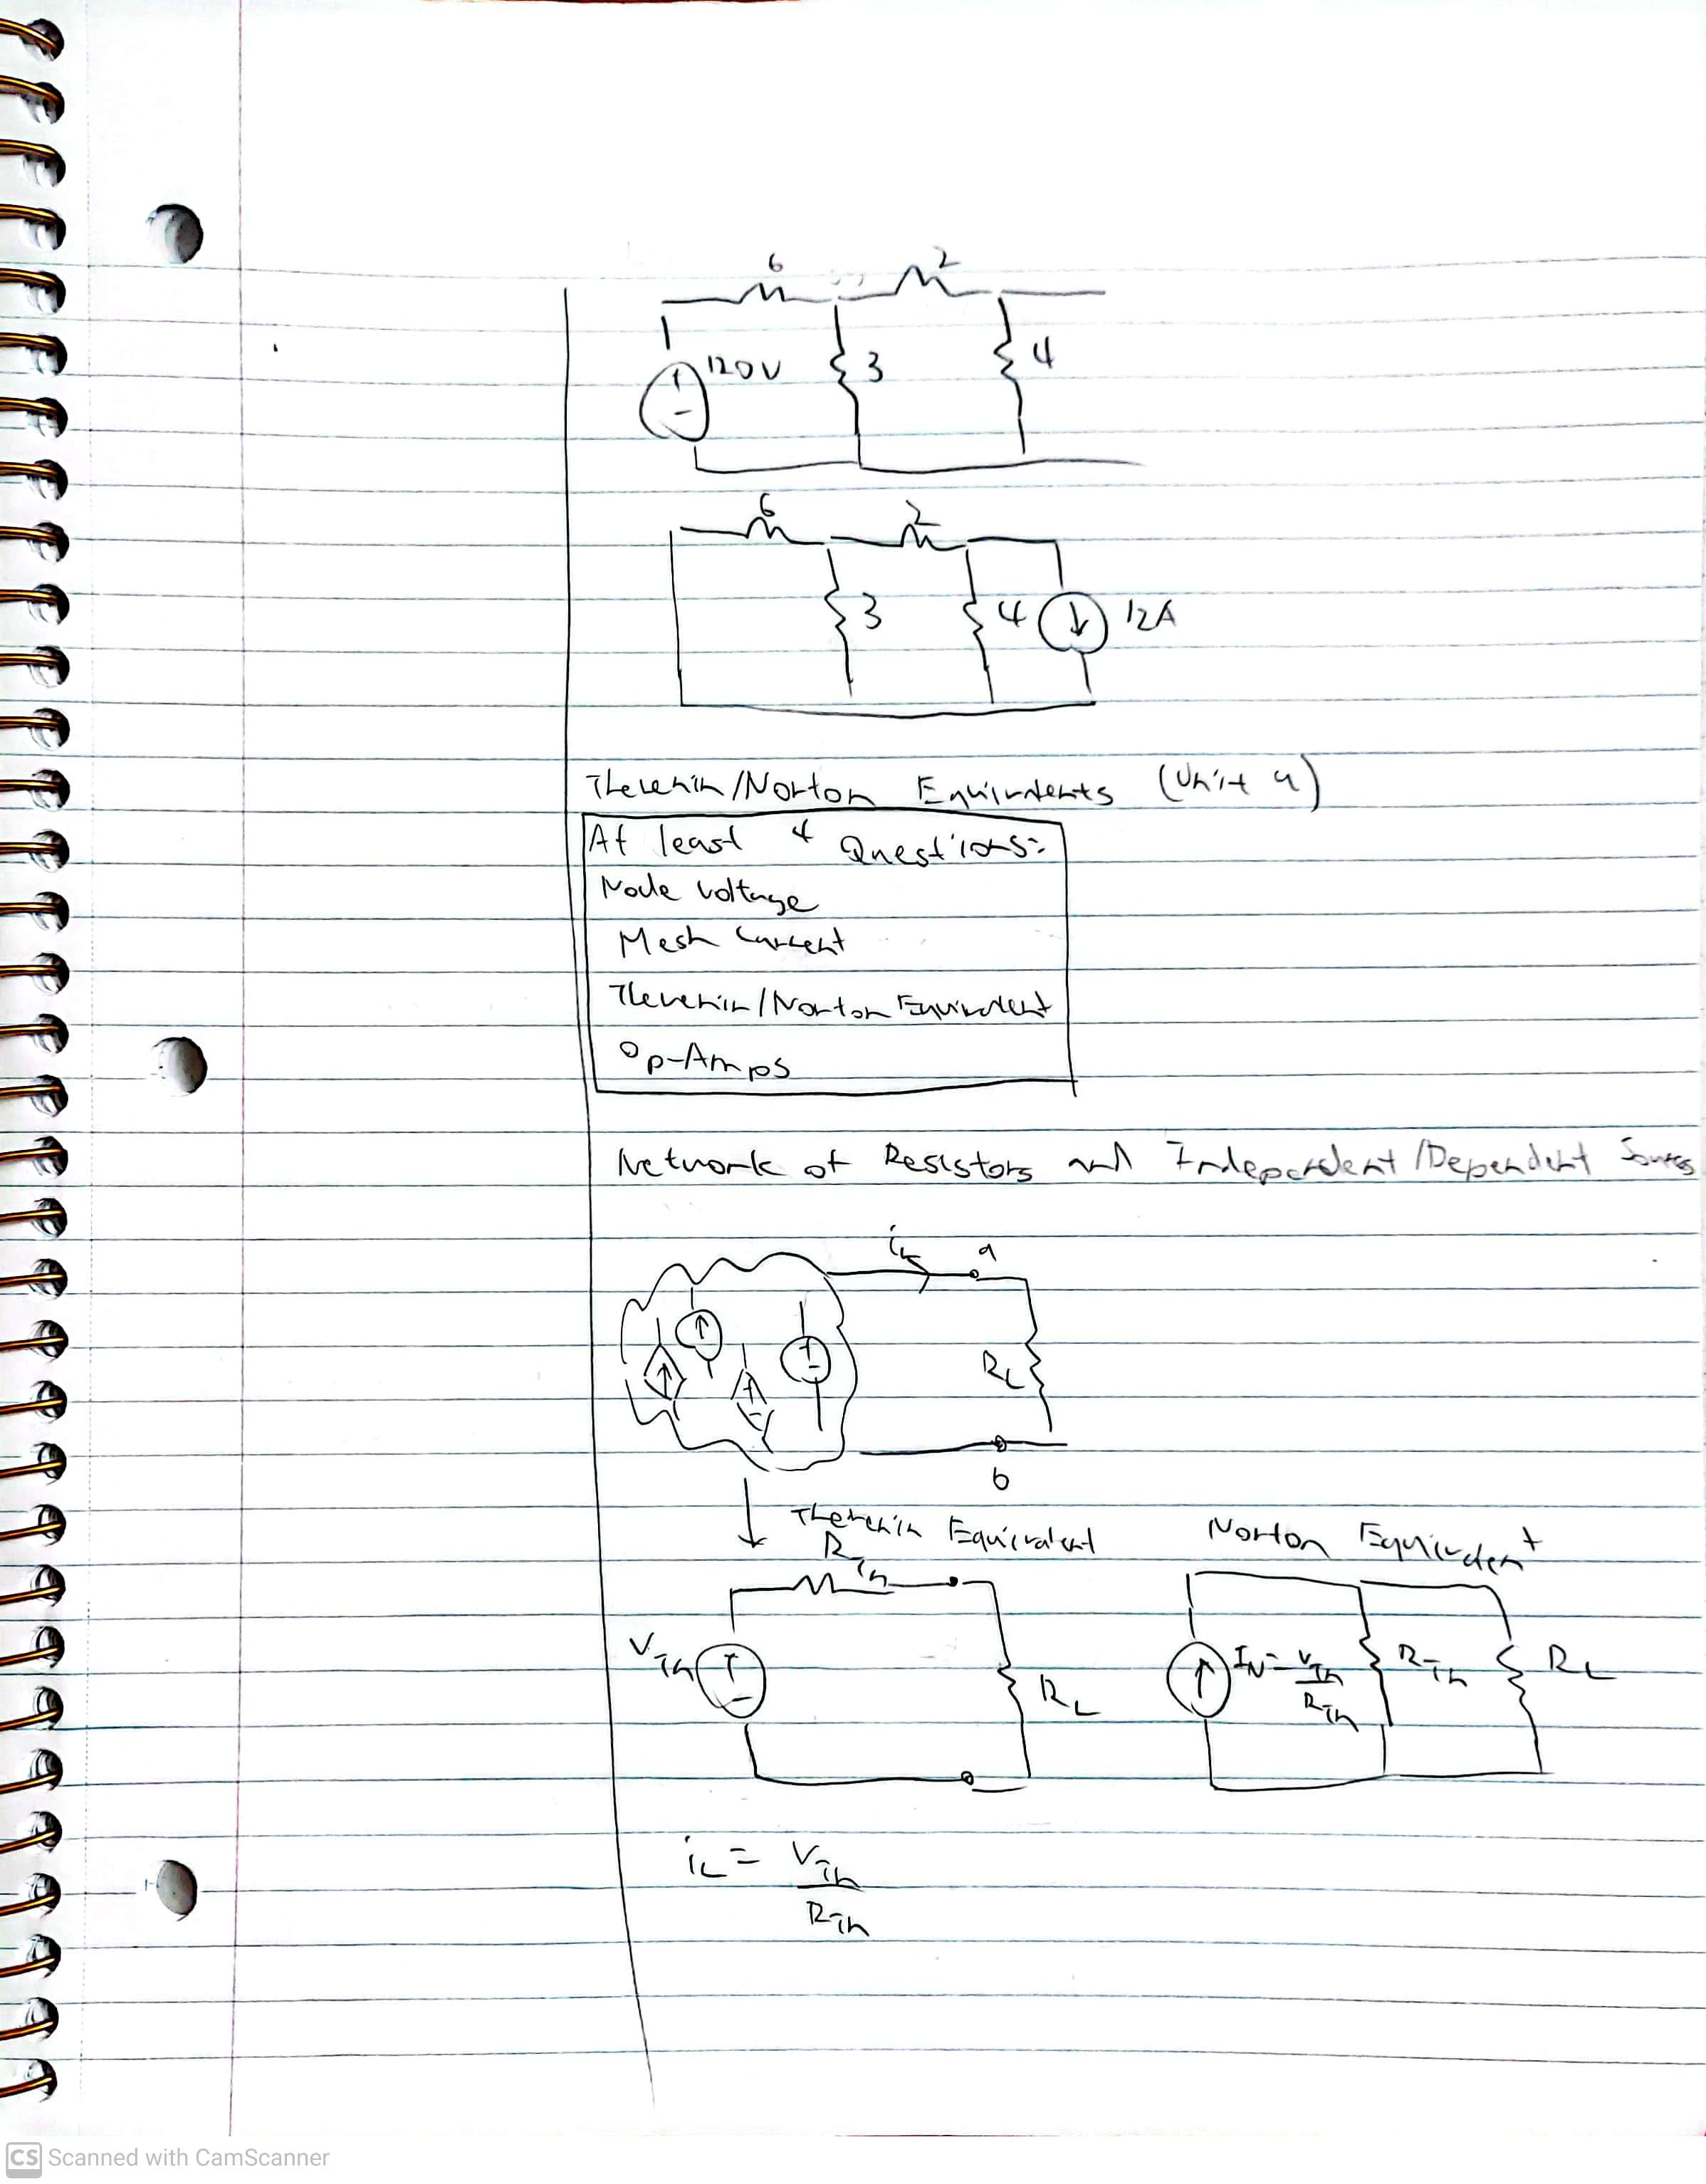 6 2
120V 3 4
6 2
3 4 12A
Thevenin/Norton Equivalents (Unit 4)
At least 4 Questions:
Node Voltage
Mesh Current
Thevenin/Norton Equivalent
Op-Amps
Network of Resistors and Independent/Dependent Sources
iL a
RL
b
Thevenin Equivalent
RTh
VTh
RL
Norton Equivalent
IN = VTh
RTh
RTh RL
iL = VTh
RTh
CS Scanned with CamScanner